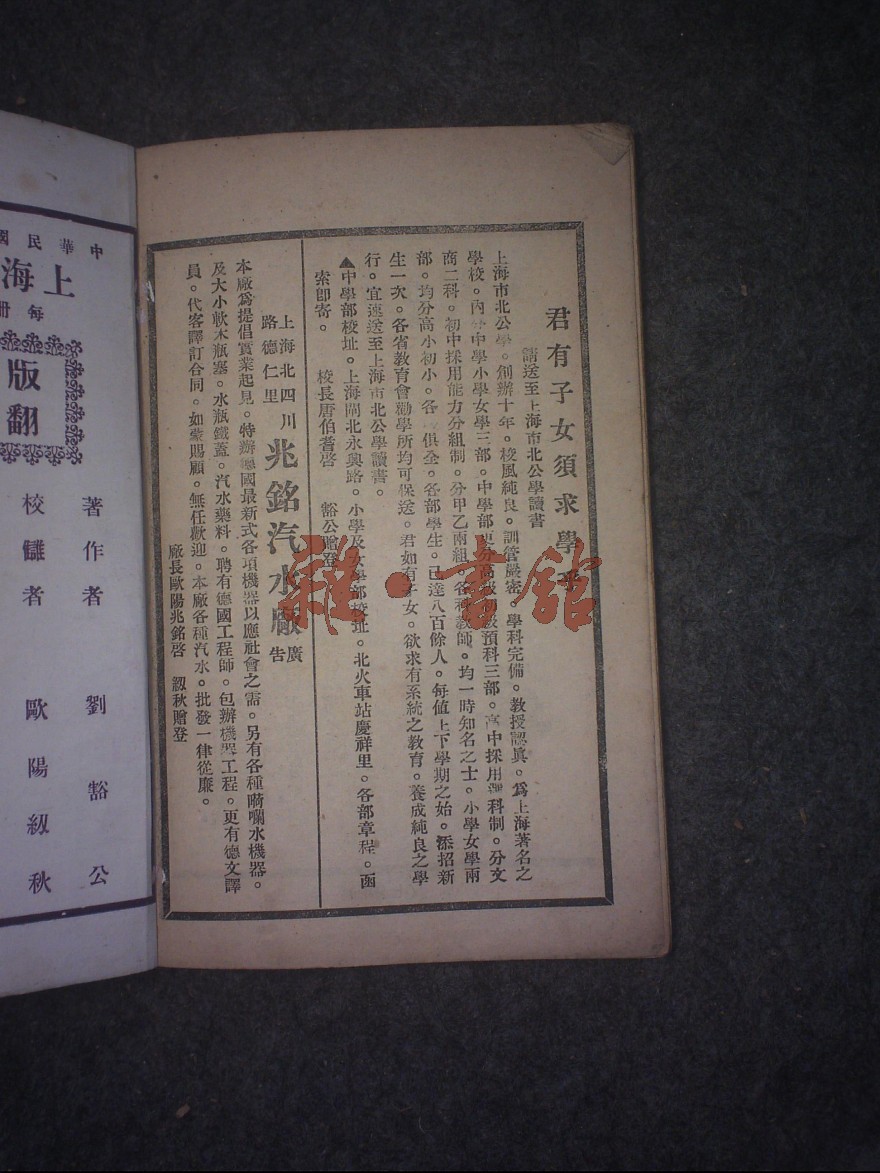 君有子女須求學乎
請送至上海市北公學讀書
上海市北公學。創辦十年。校風純良。訓管嚴密。學科完備。教授認眞。爲上海著名之
學校。內分中學小學女學三部。中學部更分高級初級預科三部。高中採用選科制。分文
商二科。初中採用能力分組制。分甲乙兩組。各科教師。均一時知名之士。小學女學兩
部。均分高小初小。各 俱全。各部學生。已達八百餘人。每值上下學期之始。添招新
生一次。各省教育會勸學所均可保送。君如有子女。欲求有系統之教育。養成純良之學
行。宜速送至上海市北公學讀書。
▲中學部校址。上海閘北永興路。小學及女學部校址。北火車站慶祥里。各部章程。函
索卽寄。 校長唐伯耆啓 豁公贈登
上海北四川
路德仁里
兆銘汽水廠
廣告
本廠爲提倡實業起見。特辦德國最新式各項機器以應社會之需。另有各種嗬囒水機器。
及大小軟木瓶塞。水瓶鐵蓋。汽水藥料。聘有德國工程師。包辦機器工程。更有德文譯
員。代客譯訂合同。如蒙賜顧。無任歡迎。本廠各種汽水。批發一律從廉。
廠長歐陽兆銘啓 紉秋贈登
雜·書館
中華民國
上海
每冊
版
翻
著作者 劉豁公
校讎者 歐陽紉秋